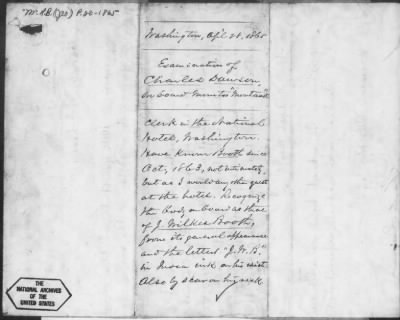 Washington, Apl 28, 1865
Examination of
Charles Dawson,
on board Monitor "Montauk"
Clerk in the National
Hotel, Washington.
Have known Booth since
Oct, 1863, not intimately,
but as I would any other guest
at the hotel. Recognize
the body on board as that
of J. Wilkes Booth,
from its general appearance
and the letters "J.W.B."
in India ink on his wrist.
Also by scar on his neck.
THE
NATIONAL ARCHIVES
OF THE
UNITED STATES